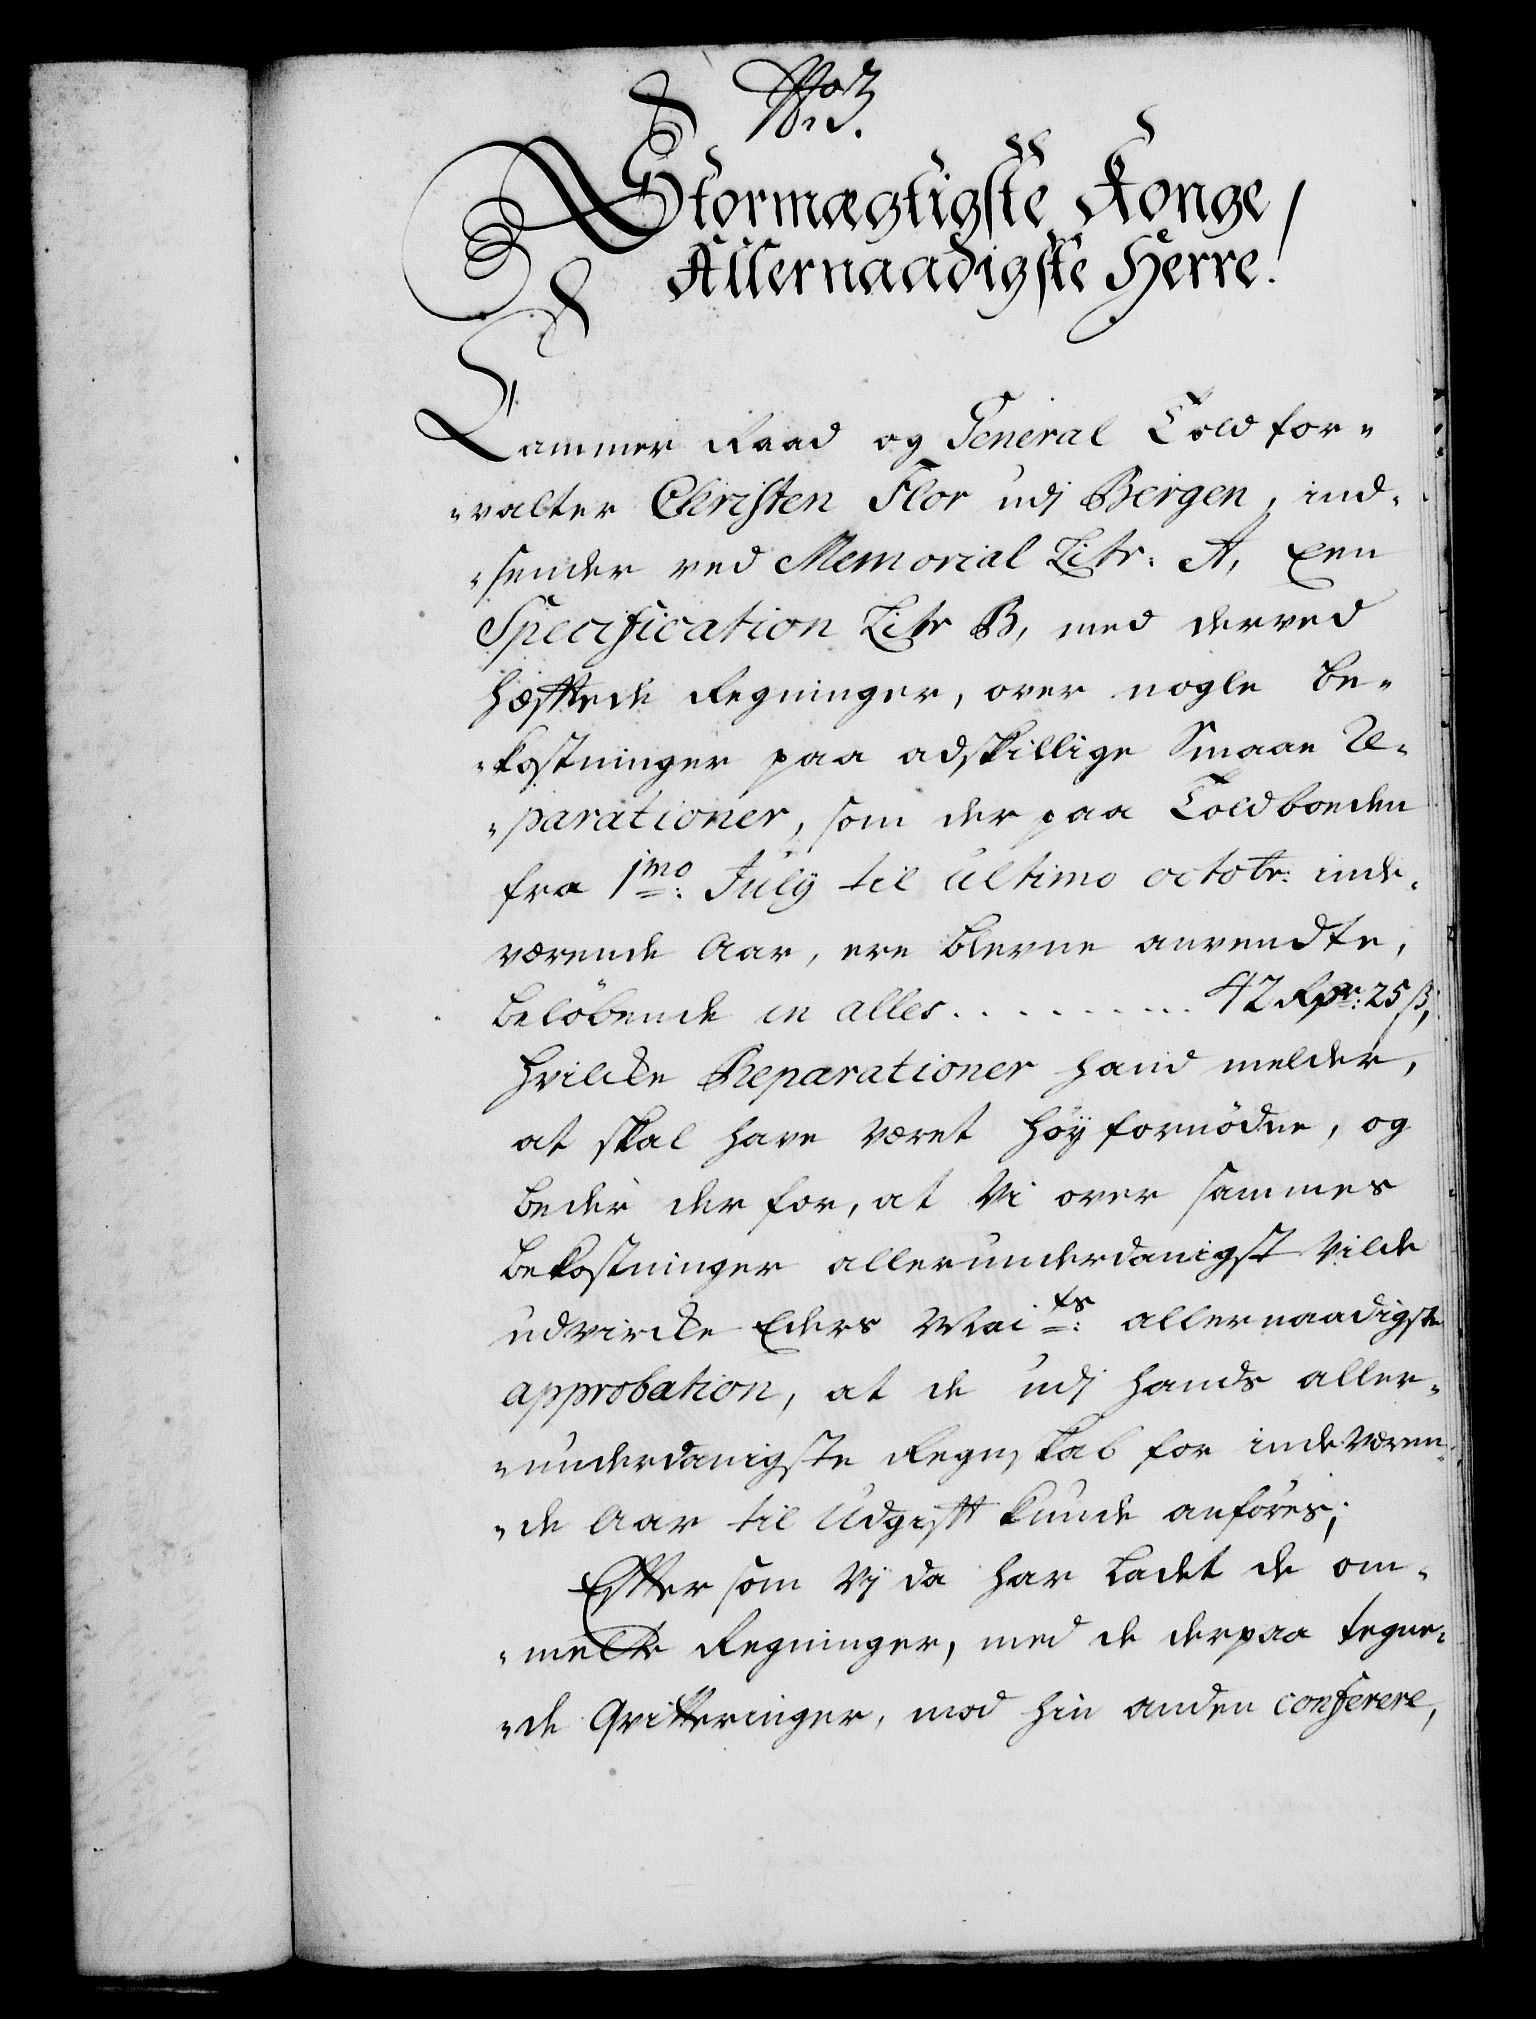 No 3.
Stormægtigste Konge
Allernaadigste Herre!
Cammer Raad og General Told for„
„valter Christen Flor udj Bergen, ind„
„sender ved Memorial Litr: A, een
Specification Litr B, med derved
hæfftede Regninger, over nogle be„
„kostninger paa adskillige Smaae Re„
„parationer, som der paa Toldboeden
fra 1mo: July til ultimo octobr: inde„
værende Aar, ere blevne anvendte,
beløbende in alles . . . . . . . . . 42 Rdr: 25 ß,
hvilcke Reparationer hand melder,
at skal have været høy fornødne, og
beder der for, at Vi over sammes
bekostninger allerunderdanigst vilde
udvircke Eders Maits: allernaadigste
approbation, at de udj hands aller„
„underdanigste Regnskab for indeværen„
„de Aar til Udgifft kunde anføres;
Efftersom Vj da har ladet de om„
„melte Regninger, med de derpaa tegne„
„de Qvitteringer, mod hin anden conferere,